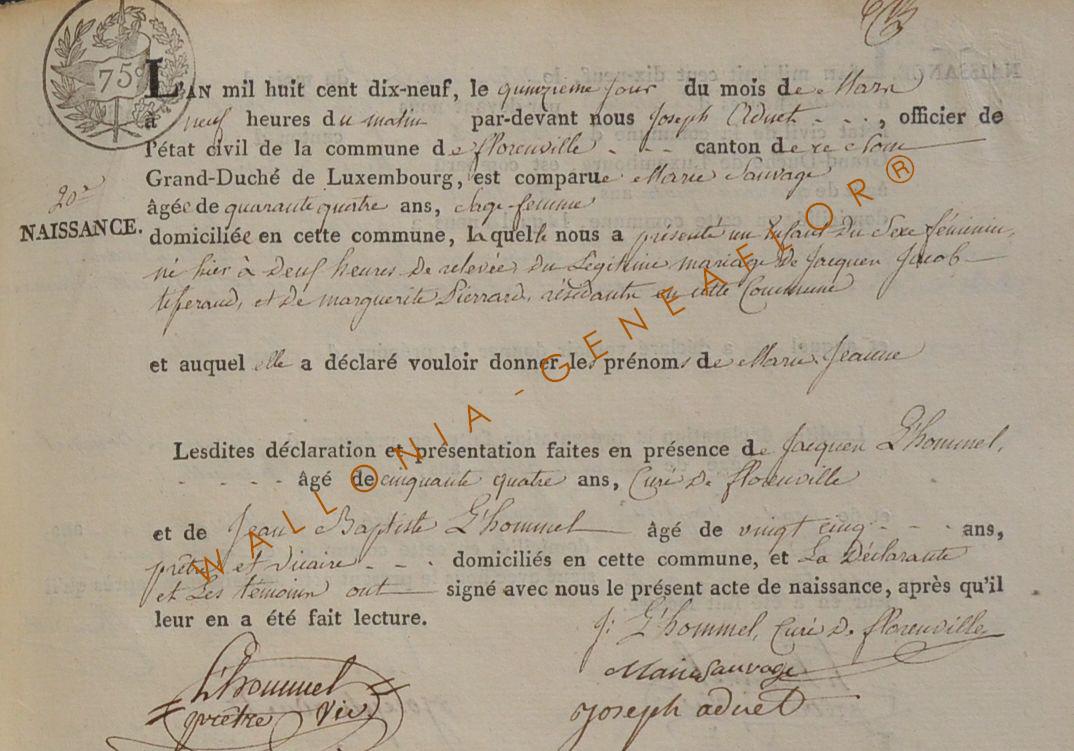 75c
L'AN mil huit cent dix-neuf, le quinzieme jour du mois de Mars
à neuf heures du matin par-devant nous Joseph Aduet - - -, officier de
l'état civil de la commune de florenville - - - canton de
Grand-Duché de Luxembourg, est comparue Marie Sauvage
20e
NAISSANCE.
âgée de quarante quatre ans, Sage-femme
domiciliée en cette commune, laquelle nous a présenté un Enfant du Sexe féminin,
né hier à deuf heures de relevée, du Légitime mariage de Jacques Jacob
et de marguerite Pierrard, résidants en cette Commune
et auquel elle a déclaré vouloir donner les prénoms de Marie Jeanne
Lesdites déclaration et présentation faites en présence de Jacques L'hommel,
- - - - âgé de cinquante quatre ans, Curé de florenville
et de Jean Baptiste L'hommel âgé de vingt cinq - - - ans,
prêtre et Vicaire - - - domiciliés en cette commune, et La Déclarante
et Les témoins ont signé avec nous le présent acte de naissance, après qu'il
leur en a été fait lecture.
J: L'hommel, Curé de florenville
L'hommel
prêtre Vic
Marie Sauvage
Joseph aduet
WALLONIA-GENEAFLOR®